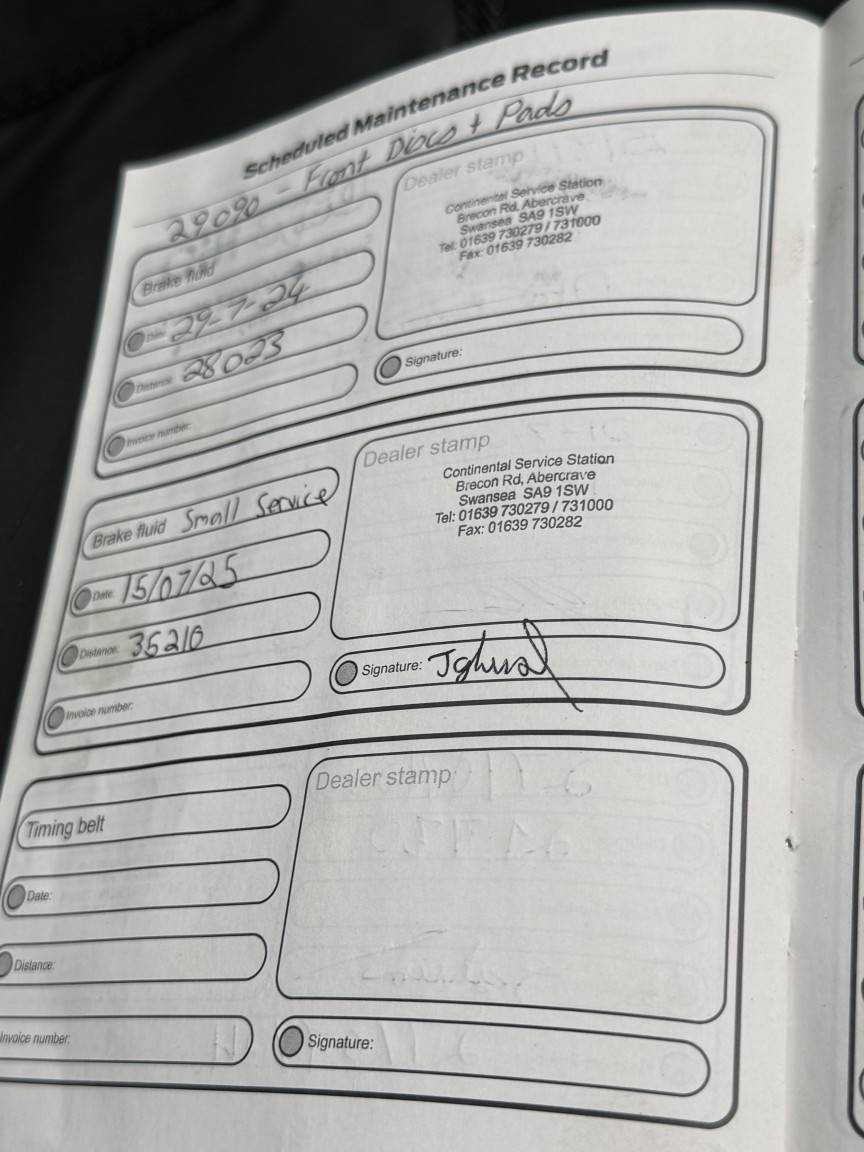 Scheduled Maintenance Record
29090 - Front Discs + Pads
Brake fluid
Date: 29-7-24
Distance: 28023
Invoice number:
Dealer stamp
Continental Service Station
Brecon Rd, Abercrave
Swansea SA9 1SW
Tel: 01639 730279 / 731000
Fax: 01639 730282
Signature:
Brake fluid Small Service
Date: 15/07/25
Distance: 35210
Invoice number:
Dealer stamp
Continental Service Station
Brecon Rd, Abercrave
Swansea SA9 1SW
Tel: 01639 730279 / 731000
Fax: 01639 730282
Signature:
Timing belt
Date:
Distance:
Invoice number:
Dealer stamp
Signature: